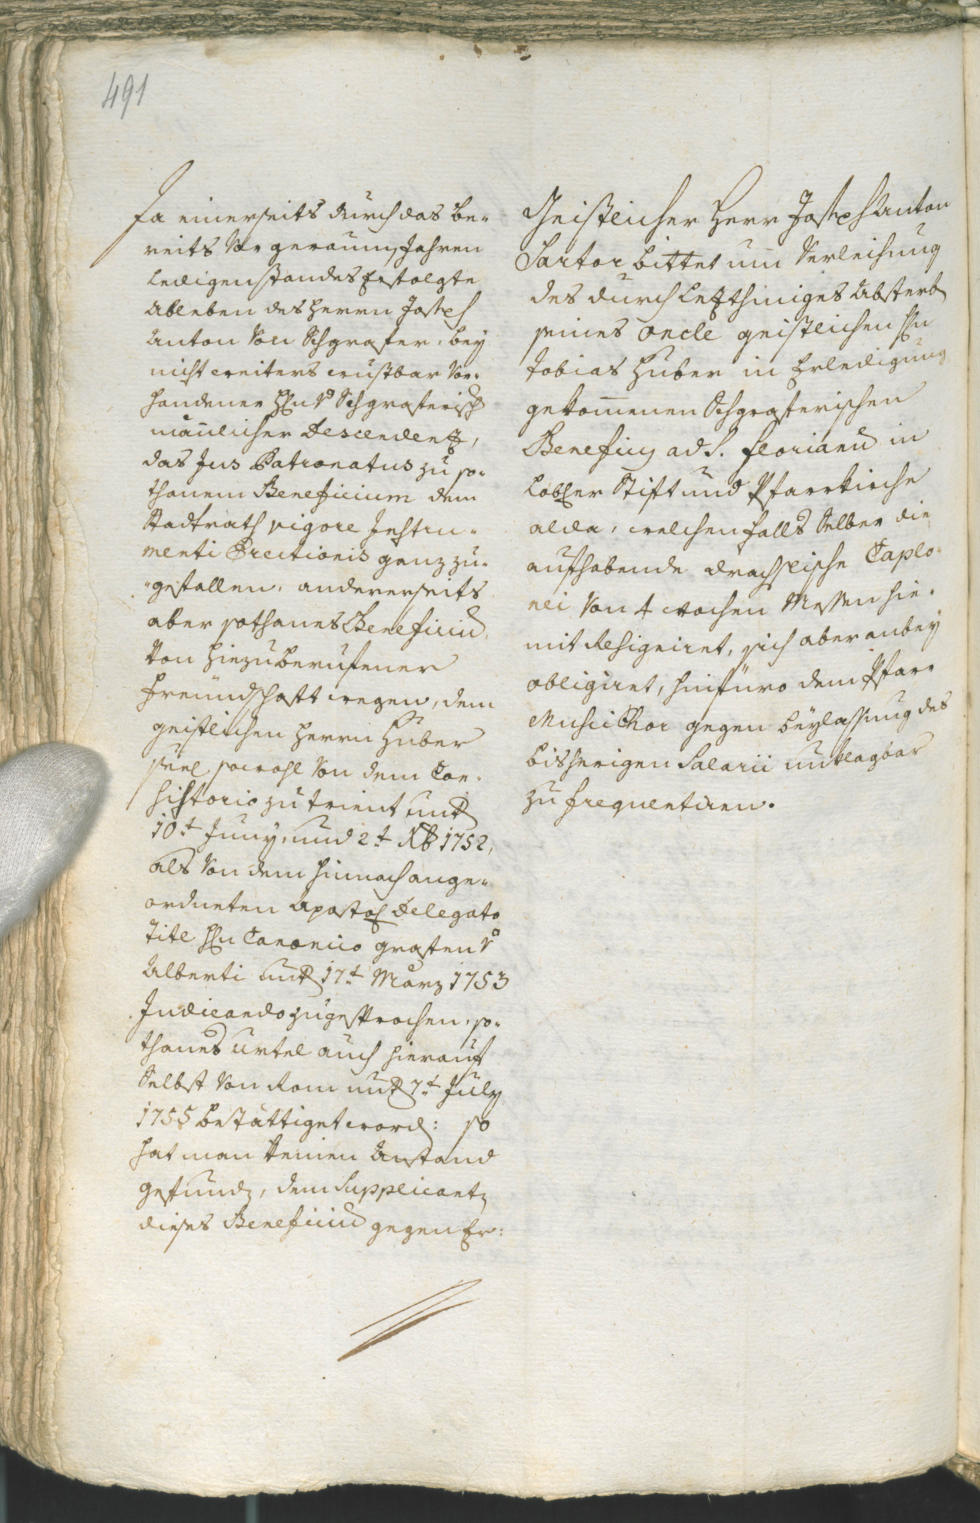 491
Ja einerseits durch das be-
reits vor geraumen Jahren
ledigen standes erfolgte
ableben des Herrn Joseph
Anton von Schgrafer, bey
nicht weiters wustbar vor-
handener Hrn v. Schgraferisch
mañlicher Descendenz,
das Jus Patronatus zu so-
thanem Beneficium dem
Stadtrath vigore Instru-
menti Erectionis ganz zu-
gefallen, andererseits
aber sothanes Beneficiu
von hiezu berufener
Freundschaft wegen, dem
geistlichen Herrn Huber
seel sowohl von dem Con-
sistorio zu Trient unt
10t Juny, und 2t Xb 1752,
als von dem hinnach ange-
ordneten Apostol Delegato
Titl Hrn Canonico grafen v
Alberti unt 17t Marz 1753
Judicando zugesprochen, so-
thanes Urtel auch hierauf
Selbst von Rom unt 7t July
1755 bestättiget word: so
hat man keinen Anstand
gefund, dem Supplicant
dieses Beneficiu gegen Er-
Geistlicher Herr Joseph Anton
Sartor bittet um Verleihung
des durch letzthiniges Absterb
seines oncle geistlichen Hn
Tobias Huber in Erledigung
gekom̄enen Schgraferischen
Beneficy ad S. Florianu in
lobler Stift und Pfarrkirche
alda, welchenfalls Selber die
aufhabende Caplo-
nei von 4 wochen Messen hie-
mit Resigniret, sich aber anbey
obligiret, hinfüro dem Pfarr
Music Chor gegen beylassung des
bisherigen Salarii unklagbar
zu frequentiren.